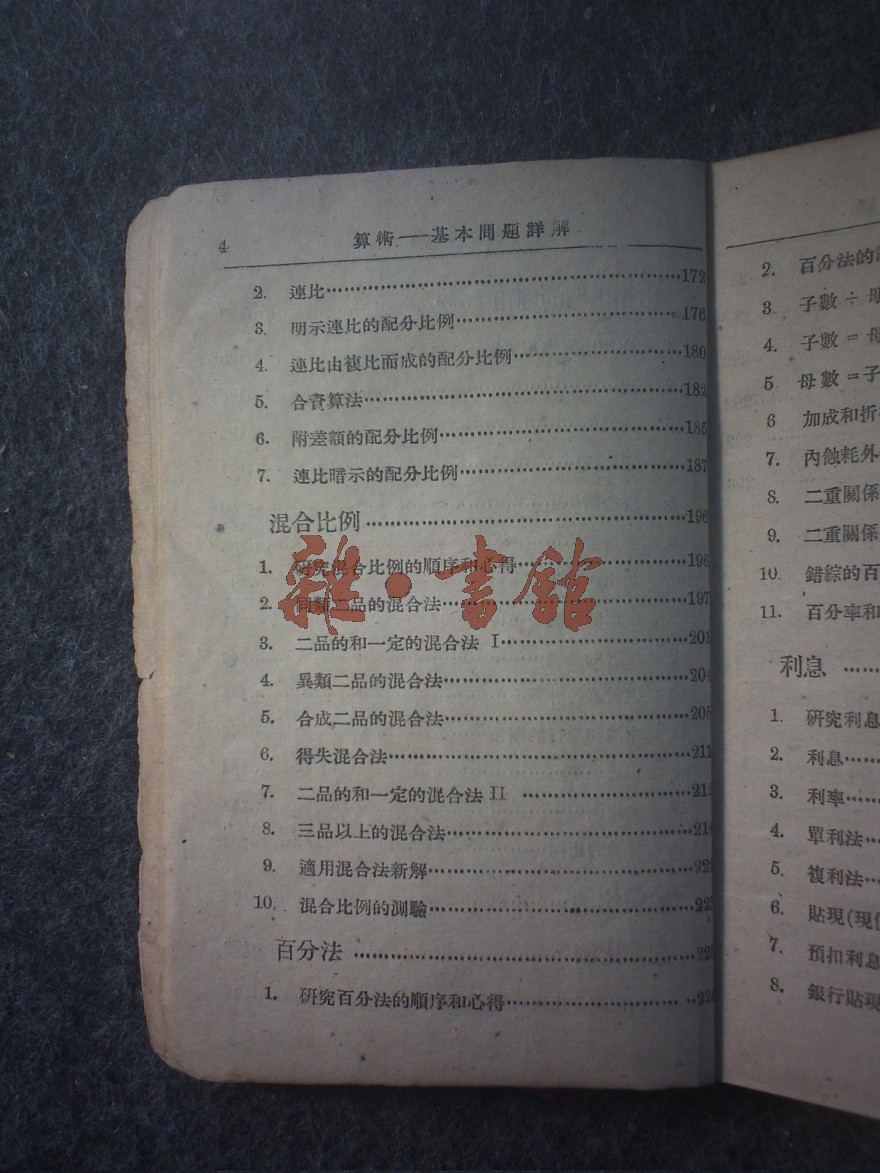 4
算術——基本問題詳解
2. 連比……172
3. 明示連比的配分比例……176
4. 連比由複比而成的配分比例……180
5. 合資算法……182
6. 附差額的配分比例……185
7. 連比暗示的配分比例……187
混合比例……196
1. 研究混合比例的順序和心得……196
2. 同類二品的混合法……197
3. 二品的和一定的混合法 I……201
4. 異類二品的混合法……204
5. 合成二品的混合法……205
6. 得失混合法……211
7. 二品的和一定的混合法 II ……
8. 三品以上的混合法……
9. 適用混合法新解……
10. 混合比例的測驗……
百分法……
1. 研究百分法的順序和心得……
雜·書館
2. 百分法的
3. 子數÷母
4. 子數=母
5 母數=子
6 加成和折
7. 內蝕耗外
8. 二重關係
9. 二重關係
10. 錯綜的百
11. 百分率和
利息……
1. 研究利息
2. 利息……
3. 利率……
4. 單利法……
5. 複利法……
6. 貼現(現
7. 預扣利息
8. 銀行貼現